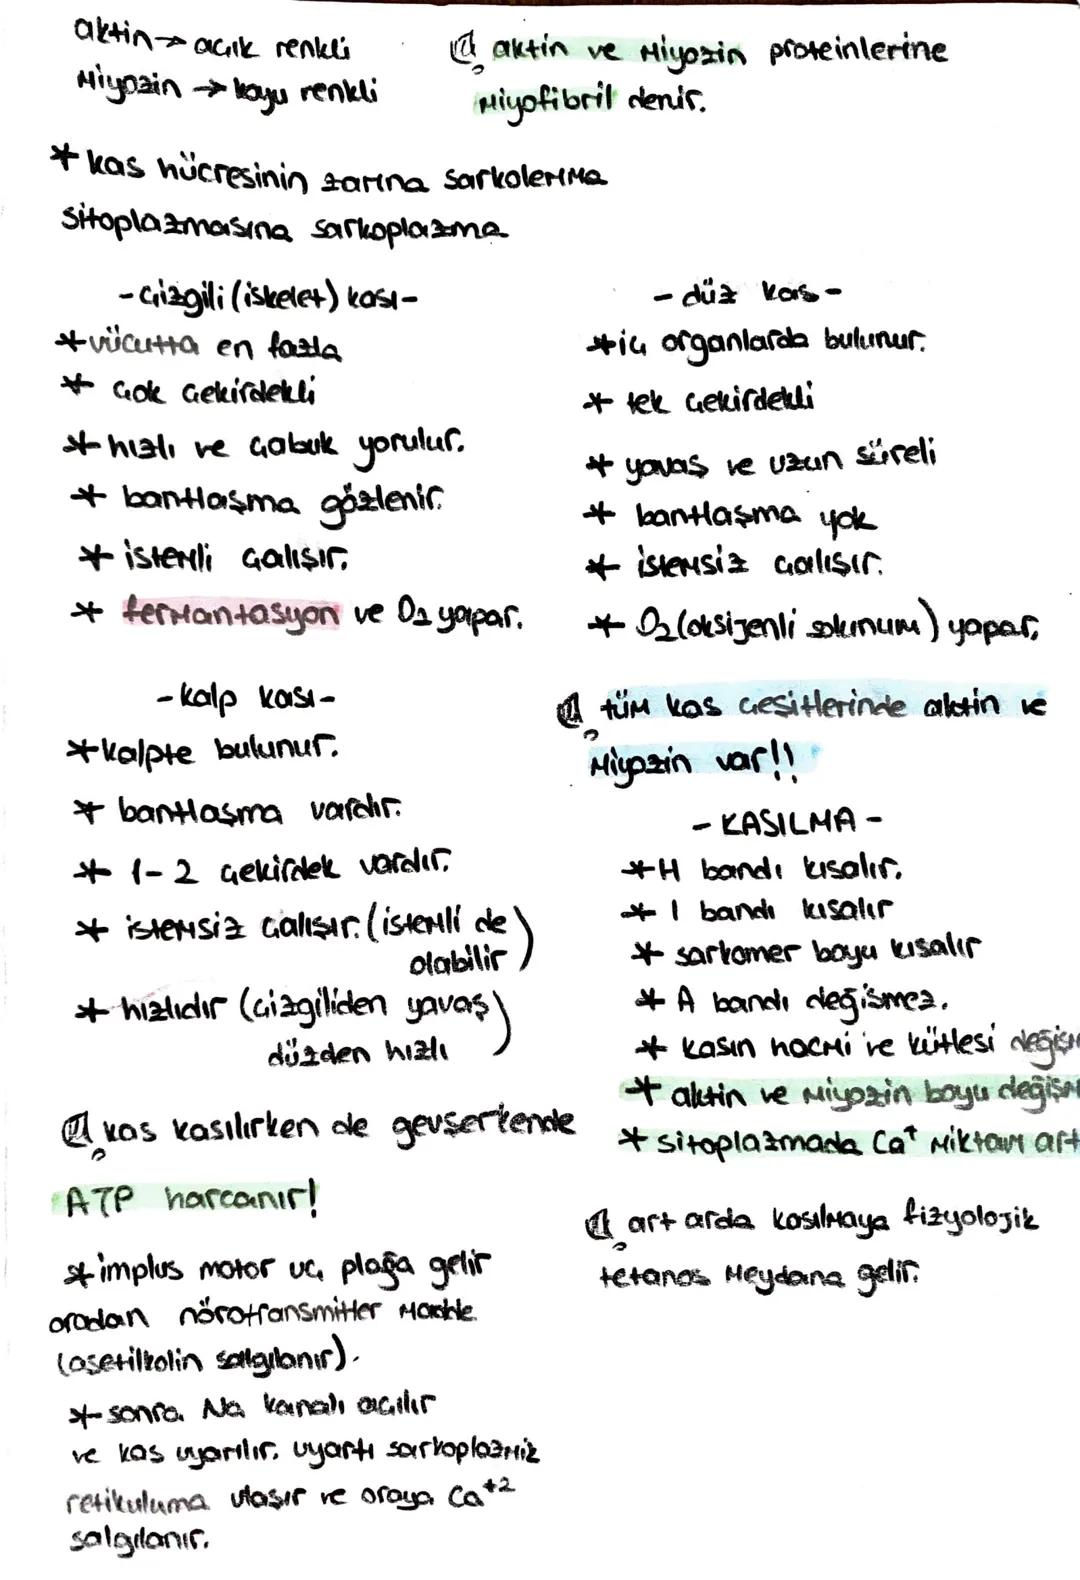 aktin → açık renkli
Miyozin → koyu renkli
aktin ve Miyozin proteinlerine
Miyofibril denir.
* kas hücresinin zarına sarkolemma
sitoplazmasına sarkoplazma
- Çizgili (iskelet) kası -
* vücutta en fazla
* çok çekirdekli
* hızlı ve çabuk yorulur.
* bantlaşma gözlenir.
* istemli çalışır.
* fermantasyon ve O2 yapar.
- düz kas -
* iç organlarda bulunur.
* tek çekirdekli
* yavaş ve uzun süreli
* bantlaşma yok
* istemsiz çalışır.
* O2 (oksijenli solunum) yapar.
- kalp kası -
* kalpte bulunur.
* bantlaşma vardır.
* 1-2 çekirdek vardır.
* istemsiz çalışır. (istemli de
olabilir)
* hızlıdır (çizgiliden yavaş
düzden hızlı)
kas kasılırken de gevşerkende
ATP harcanır!
* implus motor uç plağa gelir
oradan nörotransmitter madde
(asetilkolin salgılanır).
* sonra Na kanalı açılır
ve kas uyarılır. uyartı sarkoplazmik
retikuluma ulaşır ve oraya Ca+2
salgılanır.
tüm kas çeşitlerinde aktin ve
Miyozin var!!
- KASILMA -
* H bandı kısalır.
* I bandı kısalır
* sarkomer boyu kısalır
* A bandı değişmez.
* kasın hacmi ve kütlesi değişm
* aktin ve Miyozin boyu değişm
* sitoplazmada Ca+ miktarı art
art arda kasılmaya fizyolojik
tetanos meydana gelir.